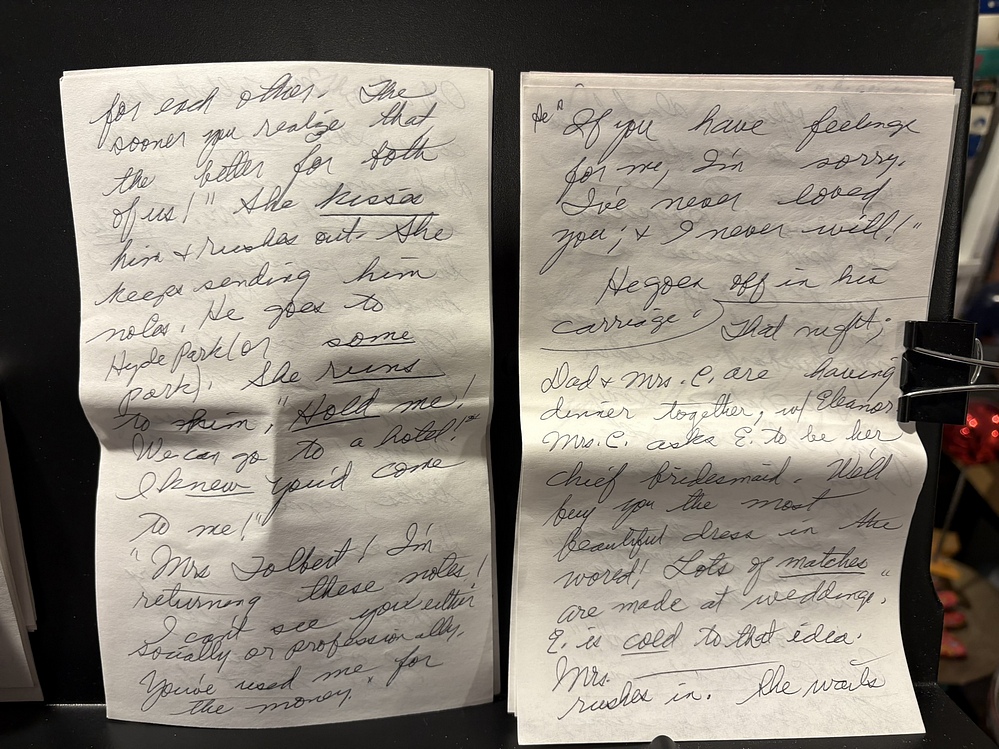 for each other. The
sooner you realize that
the better for both
of us!" She kisses
him & rushes out. She
keeps sending him
notes. He goes to
Hyde Park (or some
park). She runs
to him, "Hold me!
We can go to a hotel!"
I knew you'd come
to me!"
"Mrs Tolbert! I'm
returning these notes!
I can't see you either
socially or professionally.
You've used me for
the money,
He "If you have feelings
for me, I'm sorry.
I've never loved
you; & I never will!"
He goes off in his
carriage." That night,
Dad & Mrs. C. are having
dinner together, w/ Eleanor
Mrs. C. asks E. to be her
chief bridesmaid. We'll
buy you the most
beautiful dress in the
world! Lots of matches
are made at weddings."
E. is cold to that idea.
Mrs.
rushes in. She wails